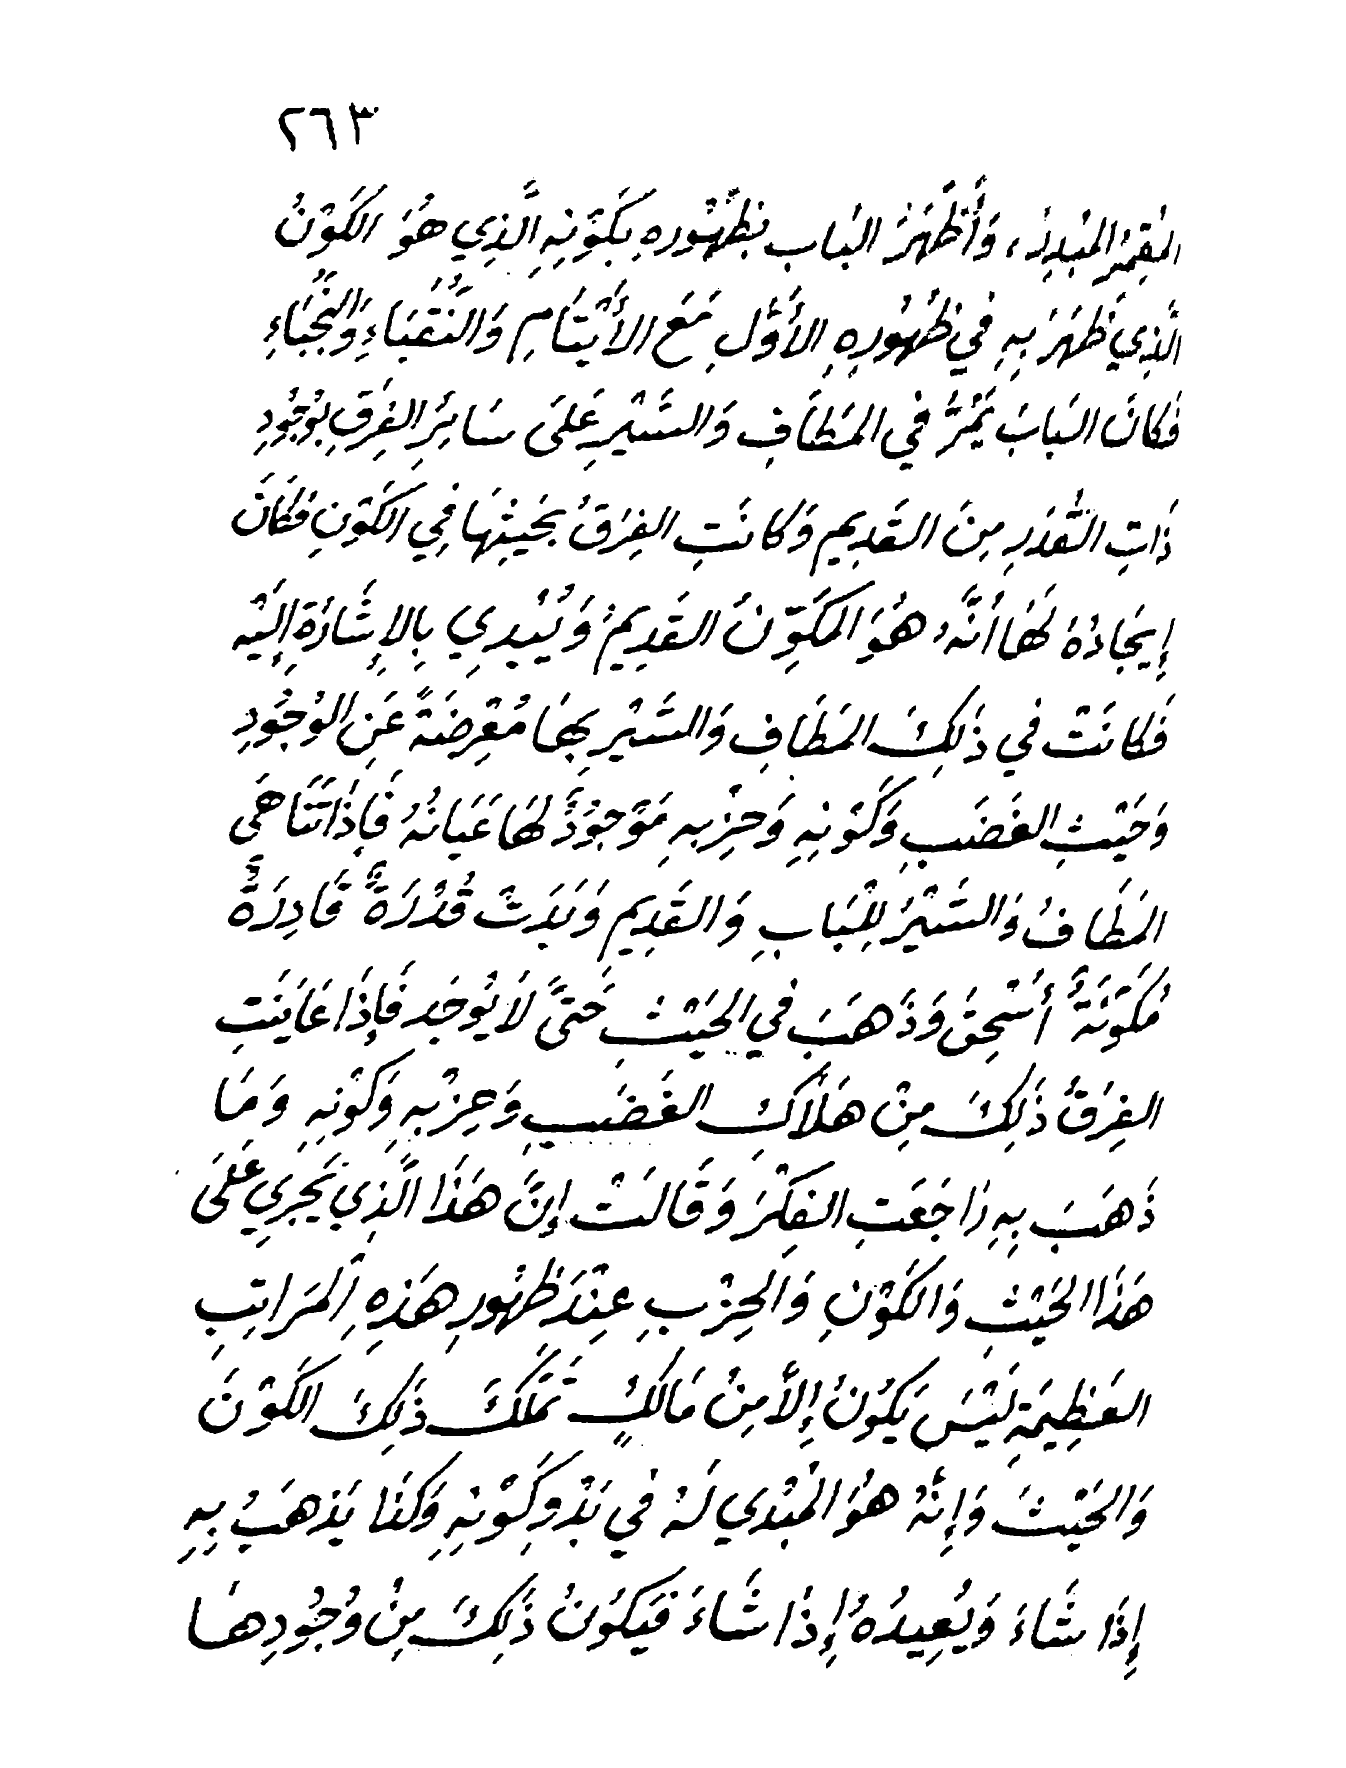 ٢٦٣
المُقِمْرُ المُبْدِرُ، وَأَظْهَرَ البَاب بِظُهُورِهِ بِكَوْنِهِ الَّذِي هُوَ الكَوْنُ
الَّذِي ظَهَرَ بِهِ فِي ظُهُورِهِ الأَوَّلِ مَعَ الأَيْتَامِ وَالنُّقَبَاءِ وَالنُّجَبَاءِ
فَكانَ البَابَ يَمُرُّ فِي المَطَافِ وَالسَّيْرِ عَلَى سَائِرِ الفِرَقِ بِوُجُودِ
ذَاتِ القُدَرِ مِنَ القَدِيمِ وَكانَتِ الفِرَقُ بِحَيثِهَا فِي الكَوْنِ فَكَانَ
إِيجَادُهُ لَهَا أَنَّهُ هُوَ المُكَوِّنُ القَدِيمُ وَيُبْدِي بِالإِشَارَةِ إِلَيْهِ
فَكانَتْ فِي ذَلِكَ المَطَافِ وَالسَّيْرِ بِهَا مُعْرِضَةً عَنِ الوُجُودِ
وَحَيْثِ الغَضَبِ وَكَوْنِهِ وَحِزْبِهِ مَوْجُوْدٌ لَهَا عَيَانُهُ فَإِذَا تَنَاهَى
المَطَافُ وَالسَّيْرُ لِلْبَابِ وَالقَدِيمِ وَبَدَتْ قُدْرَةً قَادِرَةً
مُكَوِّنَةً أَسْحَقَ وَذَهَبَ فِي الحَيْثِ حَتَّى لَا يُوجَد فَإِذَا عَايَنَتِ
الفِرَقُ ذَلِكَ مِنْ هَلَاكِ الغَضَبِ وَحِزْبِهِ وَكَوْنِهِ وَمَا
ذَهَبَ بِهِ رَاجَعَتِ الفِكْرَ وَقَالَتْ إِنَّ هَذَا الَّذِي يَجْرِي عَلَى
هَذَا الحَيْثِ وَالكَوْنِ وَالحِزْبِ عِنْدَ ظُهُورِ هَذِهِ المَرَاتِبِ
العَظِيمَةِ لَيْسَ يَكُونُ إِلاَّ مِنْ مَالِكٍ تَمَلَّكَ ذَلِكَ الكَوْنَ
وَالحَيْثَ وَإِنَّهُ هُوَ المُبْدِي لَهُ فِي بَدْوِ كَوْنِهِ وَكَذَا يَذهَبُ بِهِ
إِذَا شَاءَ وَيُعِيدُهُ إِذَا شَاءَ فَيَكُونُ ذَلِكَ مِنْ وُجُودِهَا